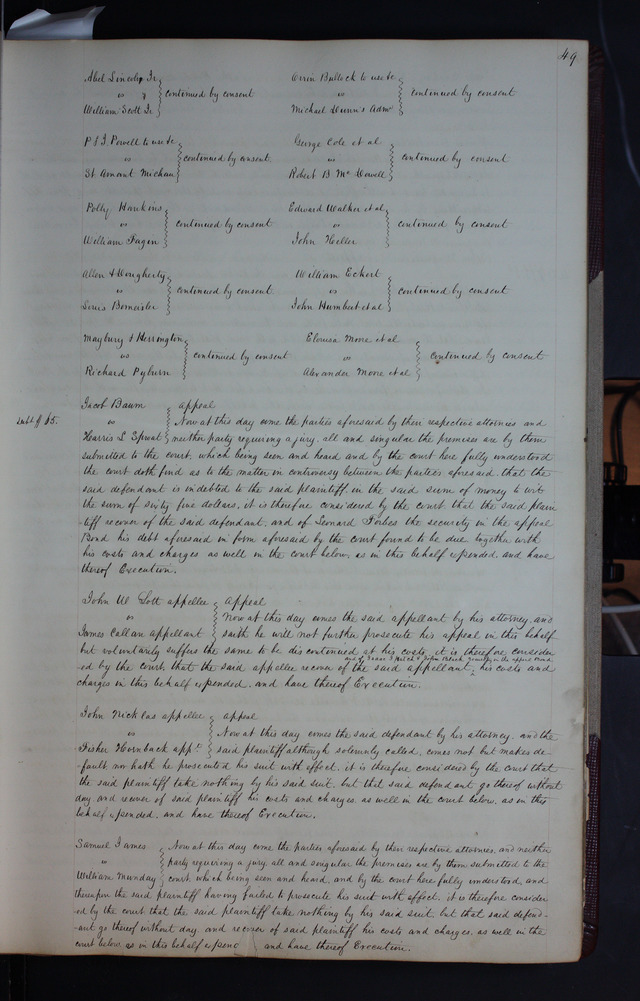 49
Abel Lincoln Jr
vs
William Scott Jr
continued by consent
Orrin Bullock to use &c
vs
Michael Dunn's Admr
continued by consent
P & J. Powell to use &c
vs
St Amant Michau
continued by consent
George Cole et al
vs
Robert B McDowell
continued by consent
Polly Hawkins
vs
William Fugen
continued by consent
Edward Walker et al
vs
John Heller
continued by consent
Allen & Dougherty
vs
Louis Bomeisler
continued by consent
William Eckert
vs
John Humbert et al
continued by consent
Maybury & Herrington
vs
Richard Pyburn
continued by consent
Elouisa Moore et al
vs
Alexander Moore et al
continued by consent
debt $65.
Jacob Baum appeal
vs Now at this day come the parties aforesaid by their respective attornies and
Harris L Sproat neither party requiring a jury. all and singular the premises are by them
submitted to the court. which being seen and heard and by the court here fully understood
the court doth find as to the matter in controversy between the parties aforesaid that the
said defendant is indebted to the said plaintiff in the said sum of money to wit
the sum of sixty five dollars. it is therefore considered by the court that the said plain
tiff recover of the said defendant, and of Leonard Forbes the security in the appeal
Bond his debt aforesaid in form aforesaid by the court found to be due together with
his costs and charges as well in the court below, as in this behalf expended. and have
thereof Execution.
John M Lott appellee appeal
vs Now at this day comes the said appellant by his attorney. and
James Callan appellant saith he will not further prosecute his appeal in this behalf
but voluntarily suffers the same to be discontinued at his costs, it is therefore consider
-ed by the court, that the said appellee recover of the said appellant, and of Isaac & John in the appeal Bond his costs and
charges in this behalf expended. and have thereof Execution.
John Nicklus appellee appeal
vs Now at this day comes the said defendant by his attorney. and the
Fisher Hornback appt said plaintiff although solemnly called, comes not but makes de-
fault nor hath he prosecuted his suit with effect. it is therefore considered by the court that
the said plaintiff take nothing by his said suit. but that said defendant go thereof without
day. and recover of said plaintiff his costs and charges. as well in the court below. as in this
behalf expended. and have thereof Execution.
Samuel James Now at this day come the parties aforesaid by their respective attornies. and neither
vs party requiring a jury. all and singular the premises are by them submitted to the
William Munday court. which being seen and heard. and by the court here fully understood. and
thereupon the said plaintiff having failed to prosecute his suit with effect. it is therefore consider
-ed by the court that the said plaintiff take nothing by his said suit but that said defend-
-ant go thereof without day. and recover of said plaintiff his costs and charges. as well in the
court below. as in this behalf expend and have thereof Execution.